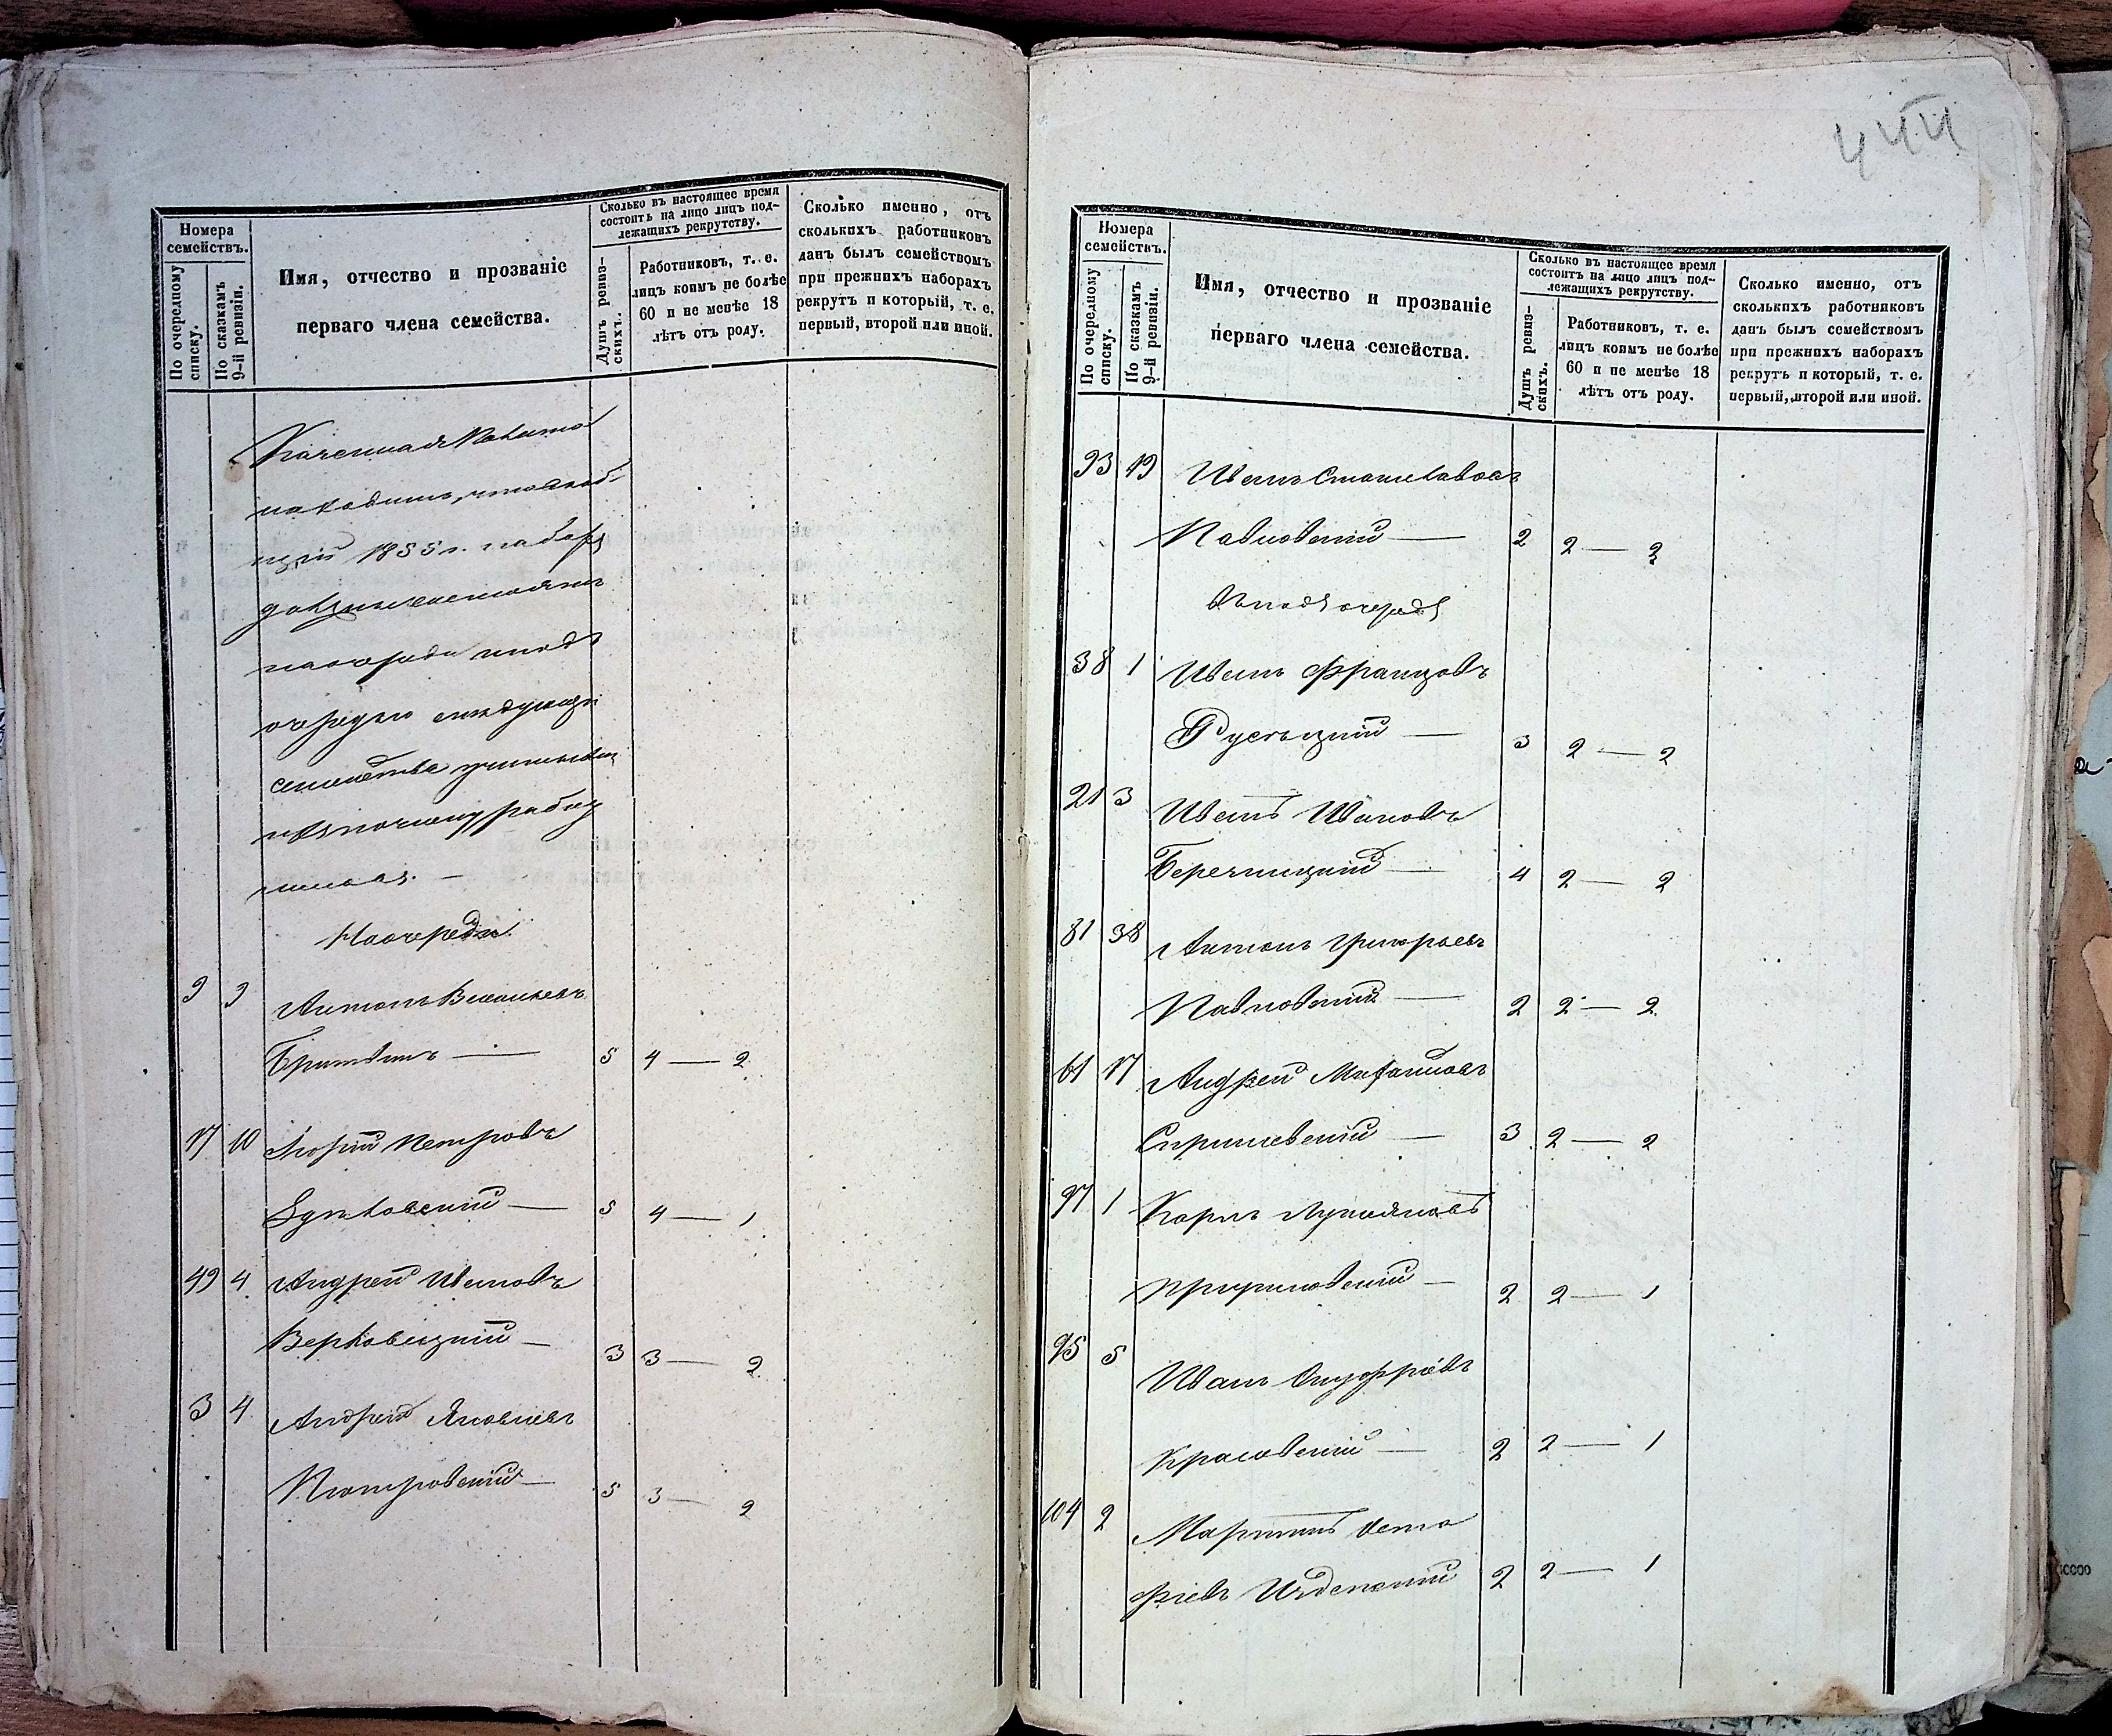 Номера
семействъ.
По очередному
списку.
По сказкамъ
9-й ревизіи.
Имя, отчество и прозваніе
перваго члена семейства.
Сколько въ настоящее время
состоитъ на лицо лицъ под-
лежащихъ рекрутству.
Душъ ревиз-
скихъ.
Работниковъ, т. е.
лицъ коимъ не болѣе
60 и не менѣе 18
лѣтъ отъ роду.
Сколько именно, отъ
сколькихъ работниковъ
данъ былъ семействомъ
при прежнихъ наборахъ
рекрутъ и который, т. е.
первый, второй или иной.
Казенная Палата
находитъ, что
1855 г. набору
должны состоять
на очереди и подъ
очередью слѣдующія
семейства
На очереди
9 9 Антонъ Васильевъ
5 4 — 2
17 10 Юрій Петровъ
5 4 — 1
49 4 Андрей Ивановъ
Верховецкій — 3 3 — 2
3 4 Андрей Яковлевъ
5 3 — 2
444
Номера
семействъ.
По очередному
списку.
По сказкамъ
9-й ревизіи.
Имя, отчество и прозваніе
перваго члена семейства.
Сколько въ настоящее время
состоитъ на лицо лицъ под-
лежащихъ рекрутству.
Душъ ревиз-
скихъ.
Работниковъ, т. е.
лицъ коимъ не болѣе
60 и не менѣе 18
лѣтъ отъ роду.
Сколько именно, отъ
сколькихъ работниковъ
данъ былъ семействомъ
при прежнихъ наборахъ
рекрутъ и который, т. е.
первый, второй или иной.
93 49 Иванъ Станиславовъ
Павловскій — 2 2 — 2
38 1 Иванъ Францовъ
Русецкій — 3 2 — 2
21 3 Иванъ Ивановъ
Беречицкій — 4 2 — 2
81 38 Антонъ Григорьевъ
Павловскій — 2 2 — 2
61 17 Андрей Михайловъ
3 2 — 2
97 1 Карлъ Лукьяновъ
2 2 — 1
95 5 Иванъ Онуфріевъ
Красовскій — 2 2 — 1
104 2 Мартинъ Оста
фіевъ 2 2 — 1